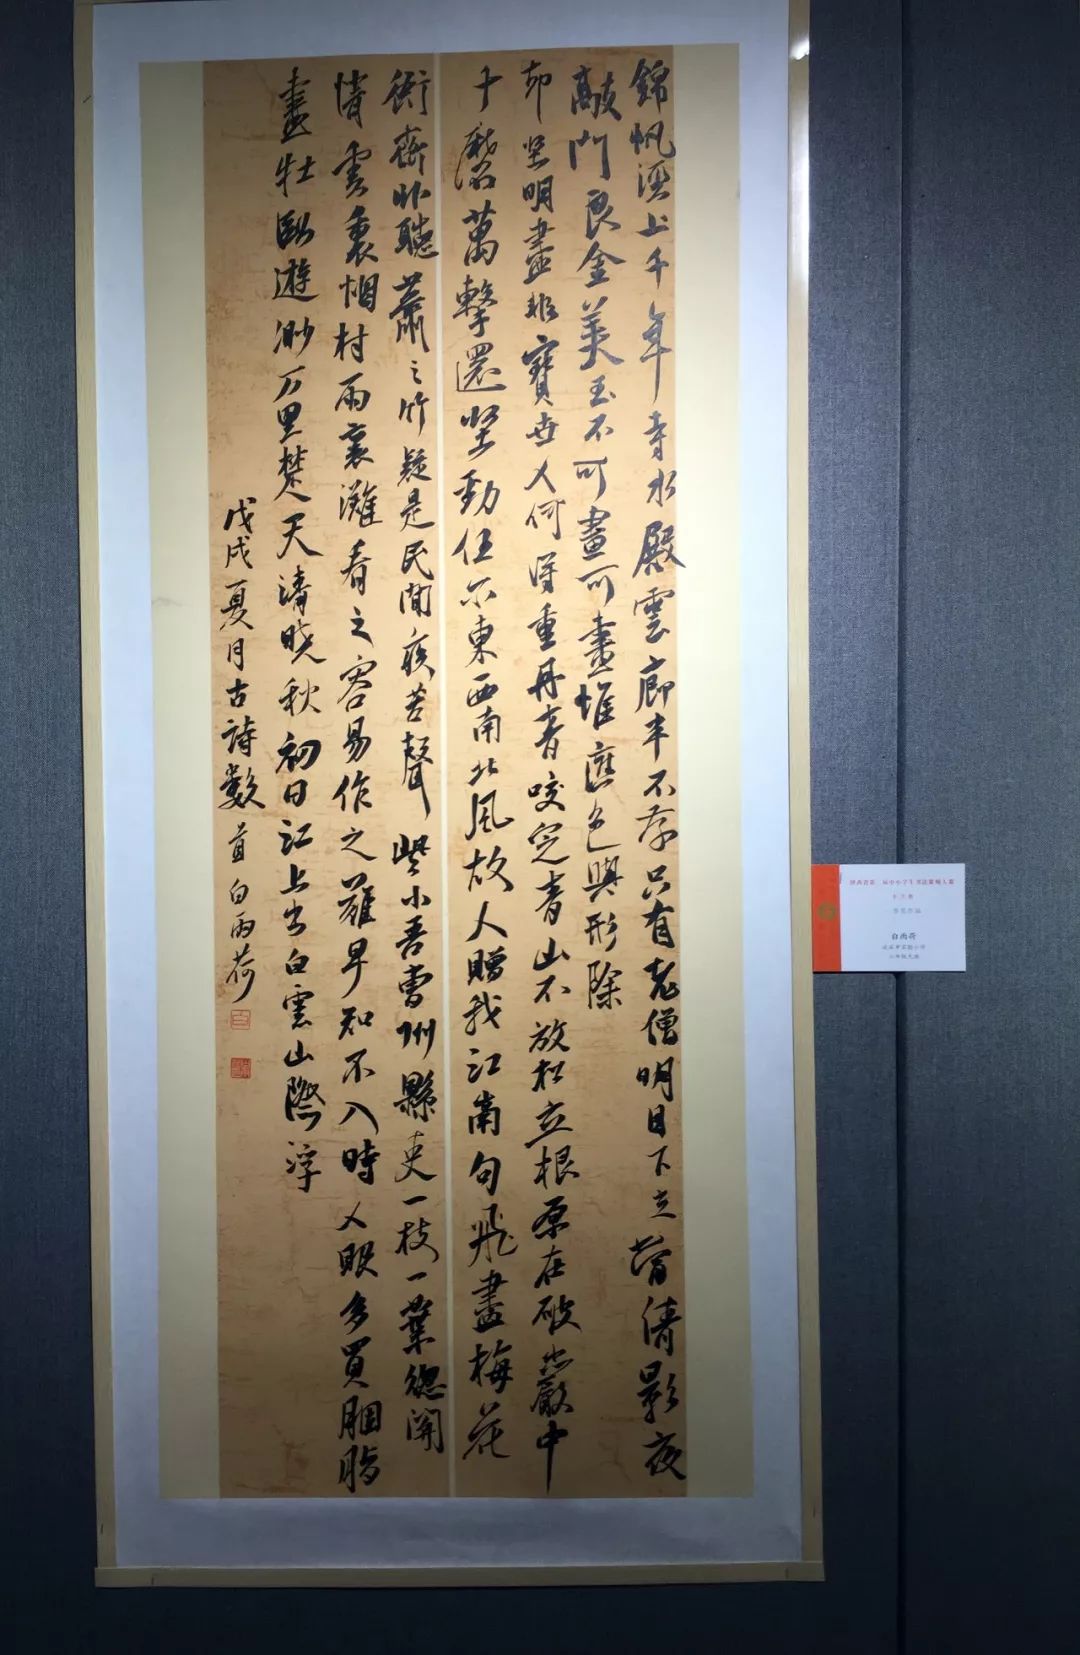 錦帆涇上千年寺水殿雲廊半不存只有老僧明月下立蒼清影夜
敲門良金美玉不可畫可畫惟應色與形除
却堅明盡非寶世人何得重丹青咬定青山不放松立根原在破巖中
千磨萬擊還堅勁任尔東西南北風故人贈我江南句飛盡梅花
衙齋卧聽蕭之竹疑是民間疾苦聲些小吾曹州縣吏一枝一葉總關
情雲裏烟村雨裏灘看之容易作之難早知不入時人眼多買胭脂
畫牡卧遊渺万里楚天清曉秋初日江上出白雲山際浮
戊戌夏月古詩数首白雨荷
白雨荷